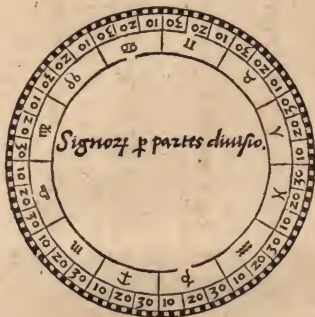 Signorꝝ ꝑ partes diuisio.
♈ ♉ ♊ ♋ ♌ ♍ ♎ ♏ ♐ ♑ ♒ ♓
10 20 30 10 20 30 10 20 30 10 20 30 10 20 30 10 20 30 10 20 30 10 20 30 10 20 30 10 20 30 10 20 30 10 20 30